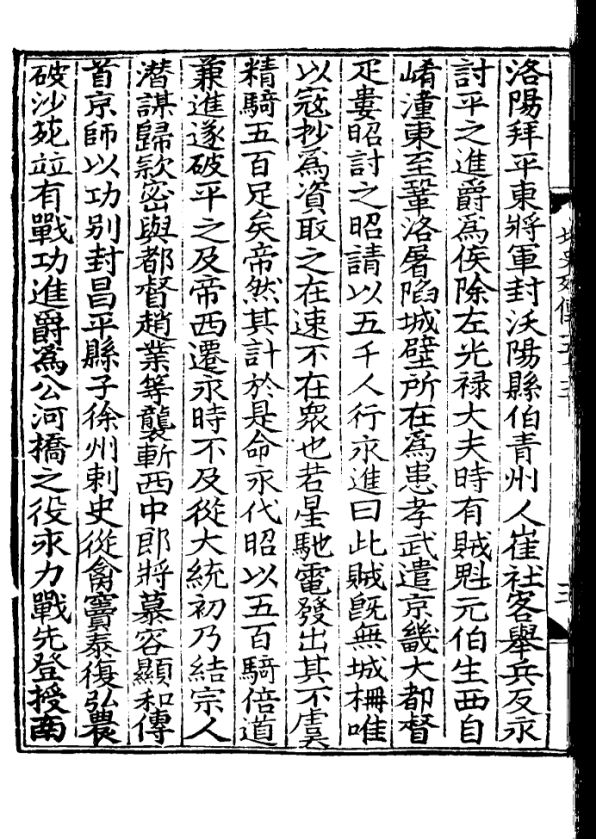 洛陽拜平東將軍封沃陽縣伯青州人崔社客舉兵反永
討平之進爵爲侯除左光禄大夫時有賊魁元伯生西自
崤潼東至鞏洛屠陷城壁所在爲患孝武遣京畿大都督
疋婁昭討之昭請以五千人行永進曰此賊旣無城柵唯
以寇抄爲資取之在速不在衆也若星馳電發出其不虞
精騎五百足矣帝然其計於是命永代昭以五百騎倍道
兼進遂破平之及帝西遷永時不及從大統初乃結宗人
潜謀歸欵密與都督趙業等襲斬西中郎將慕容顯和傳
首京師以功别封昌平縣子徐州刺史從禽竇泰復弘農
破沙苑竝有戰功進爵爲公河橋之役永力戰先登授南